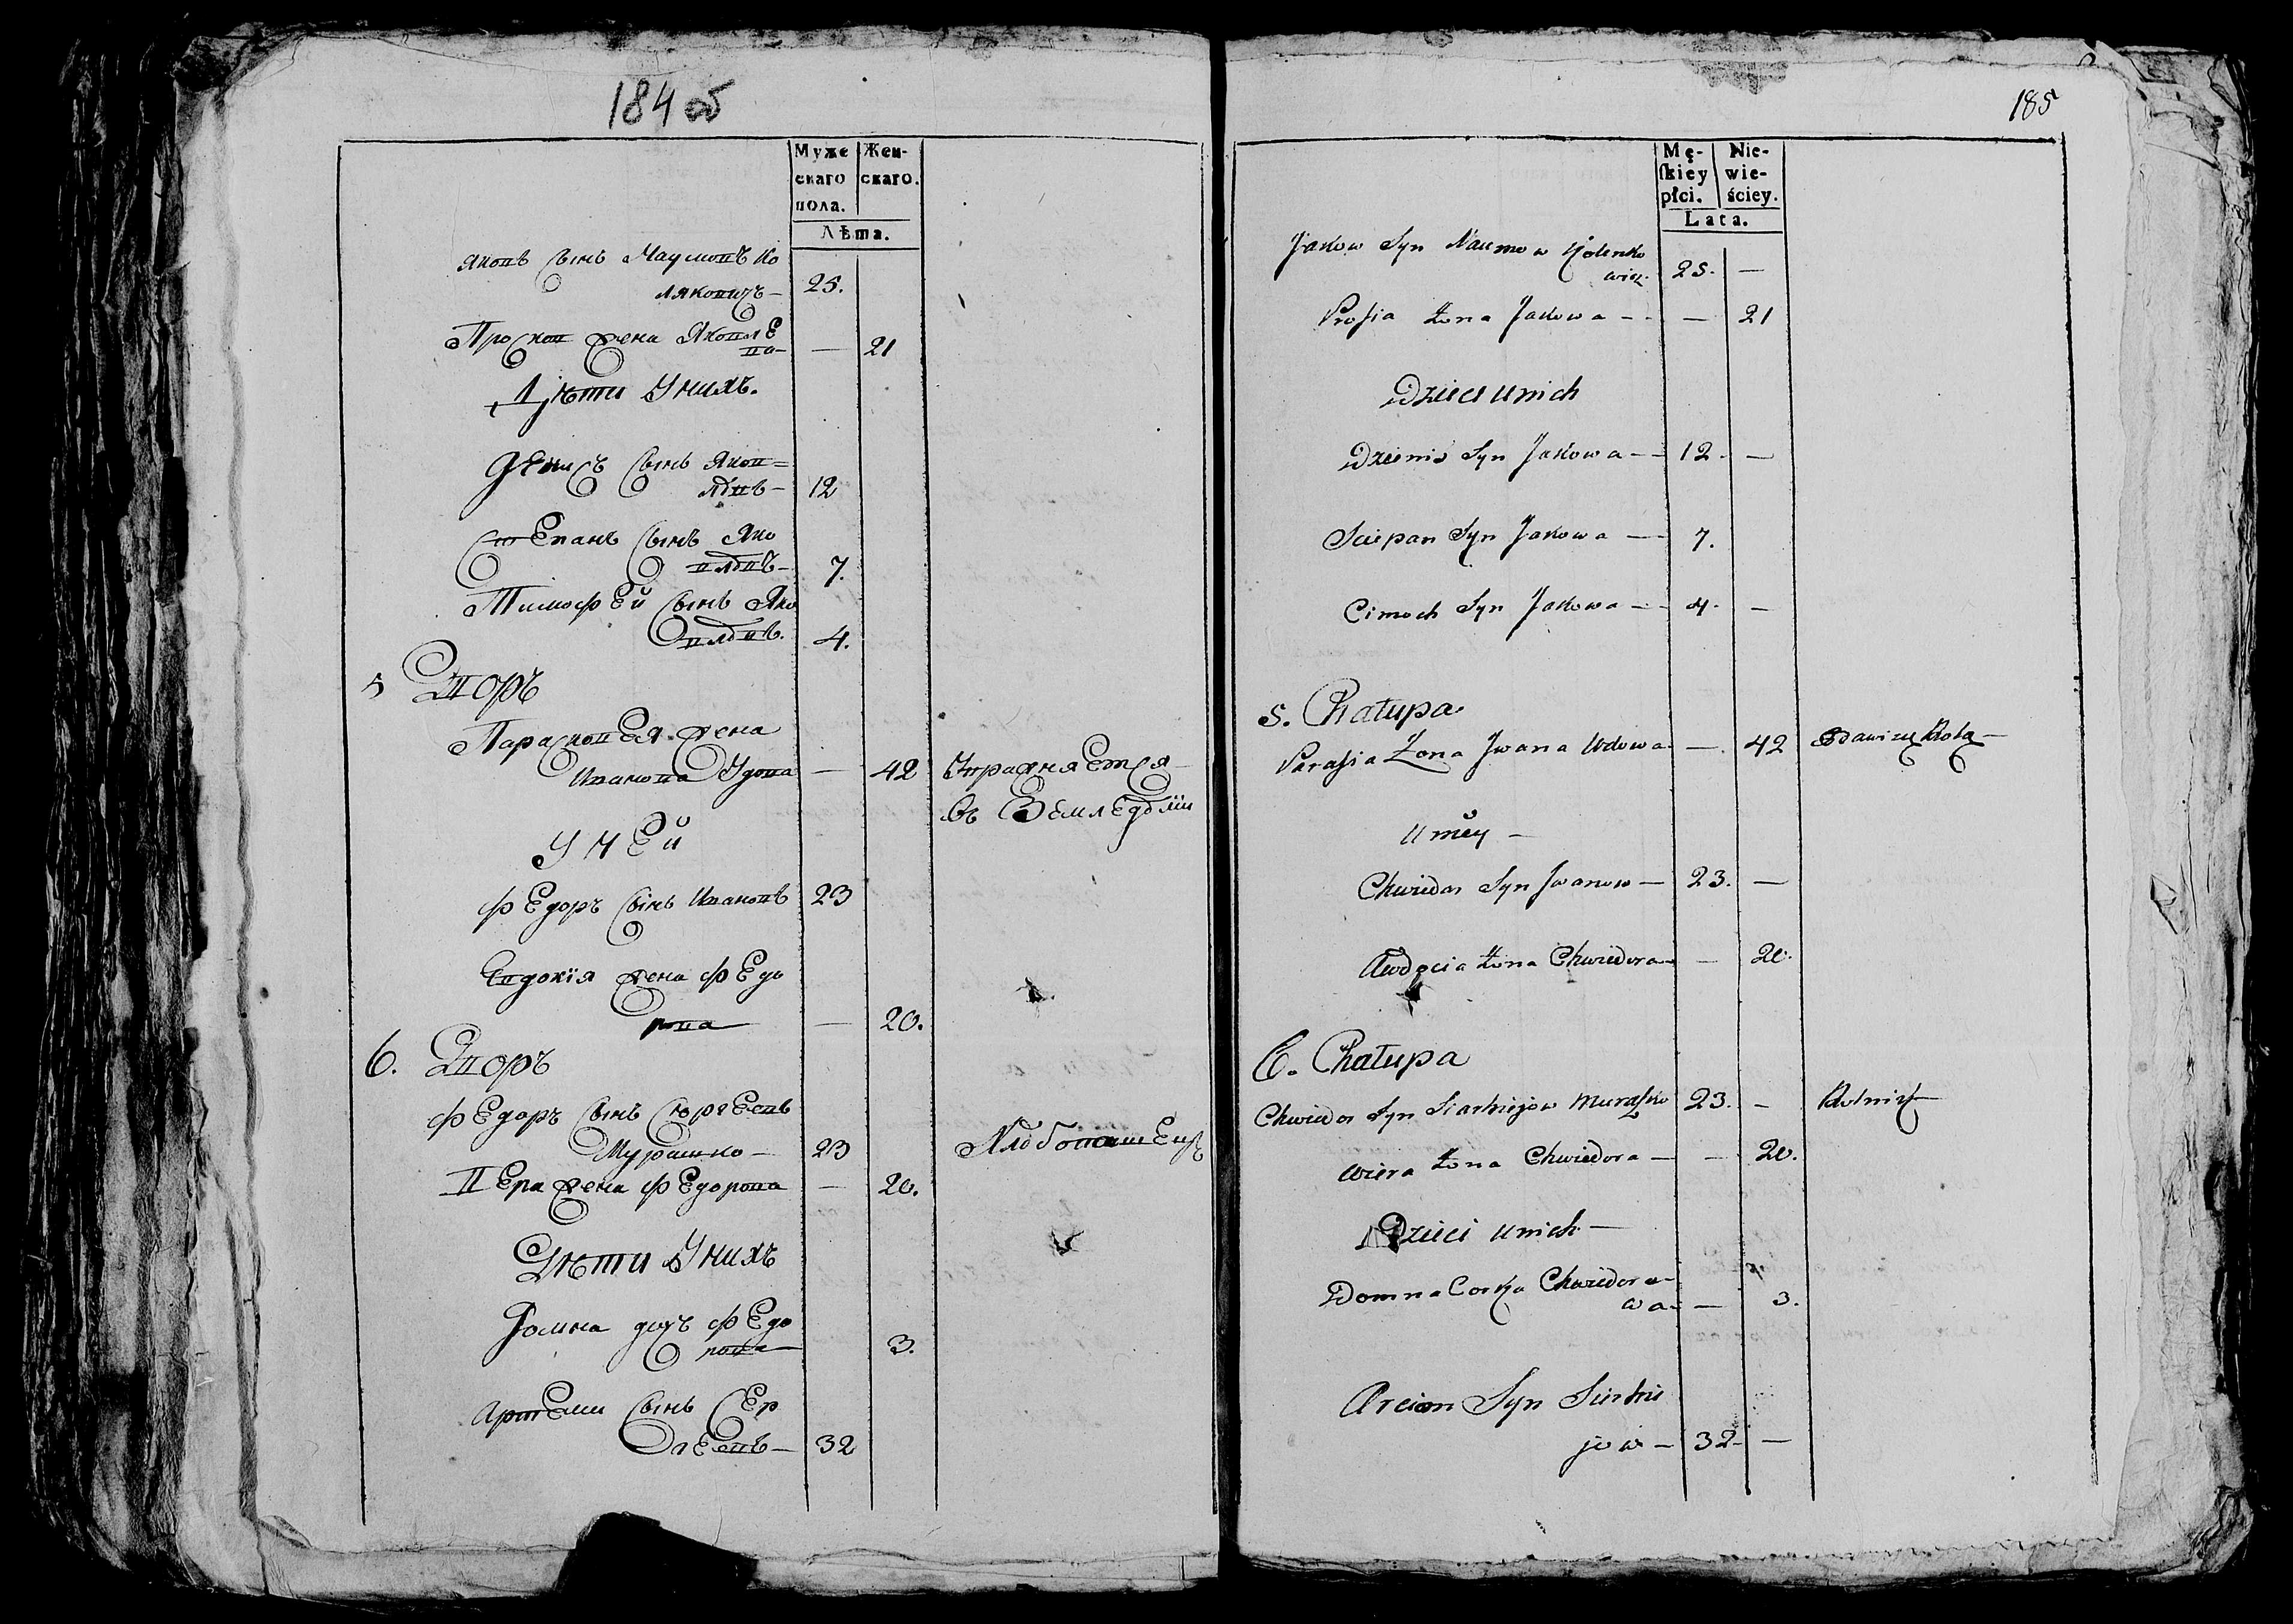 184 об
Муже
скаго
пола.
Жен-
скаго.
Лѣта.
Яковъ Сынъ Наумовъ Ко
ляковичъ — 25.
Просков Жена Яковле
ва — — 21
Дѣти У нихъ.
Денисъ Сынъ Яков=
лѣвъ — 12
Степанъ Сынъ Яко
влѣвъ — 7.
Тимофей Сынъ Яко
влѣвъ. 4.
5 Дворъ
Парасковея Жена
Иванова Удова — 42 Упражняется
въ Земледѣлiи
У Ней
Федоръ Сынъ Ивановъ 23
Евдокія Жена Федо
рова — 20.
6. Дворъ
Федоръ Сынъ Сюргеевъ
Мурашко — 23 Хлѣбопашецъ
Вера Жена Федорова — 20.
Дѣти У нихъ
Домна дочъ Федо
рова — 3.
Артеми Сынъ Сер
геевъ — 32
185
Mę-
ſkiey
płci.
Nie-
wie-
ściey.
Lata.
Jakow Syn Naumow Kolenko
wicz. 25. —
Prosia Żona Jakowa — — 21
Dzieci unich
Dzienis Syn Jakowa — 12. —
Sciepan Syn Jakowa — 7.
Cimoch Syn Jakowa — 4. —
5. Chałupa
Parasia Żona Jwana Wdowa — 42
u niey —
Chwiedor Syn Jwanow — 23. —
Awdocia Żona Chwiedora — — 20.
6. Chałupa
Chwiedor Syn Siarhiejow Muraszko 23. — Rolnik
Wiera Żona Chwiedora — — 20.
Dzieci unich —
Domna Corka Chwiedoro-
wa — — 3.
Arciom Syn Sierhie
jow — 32 — —